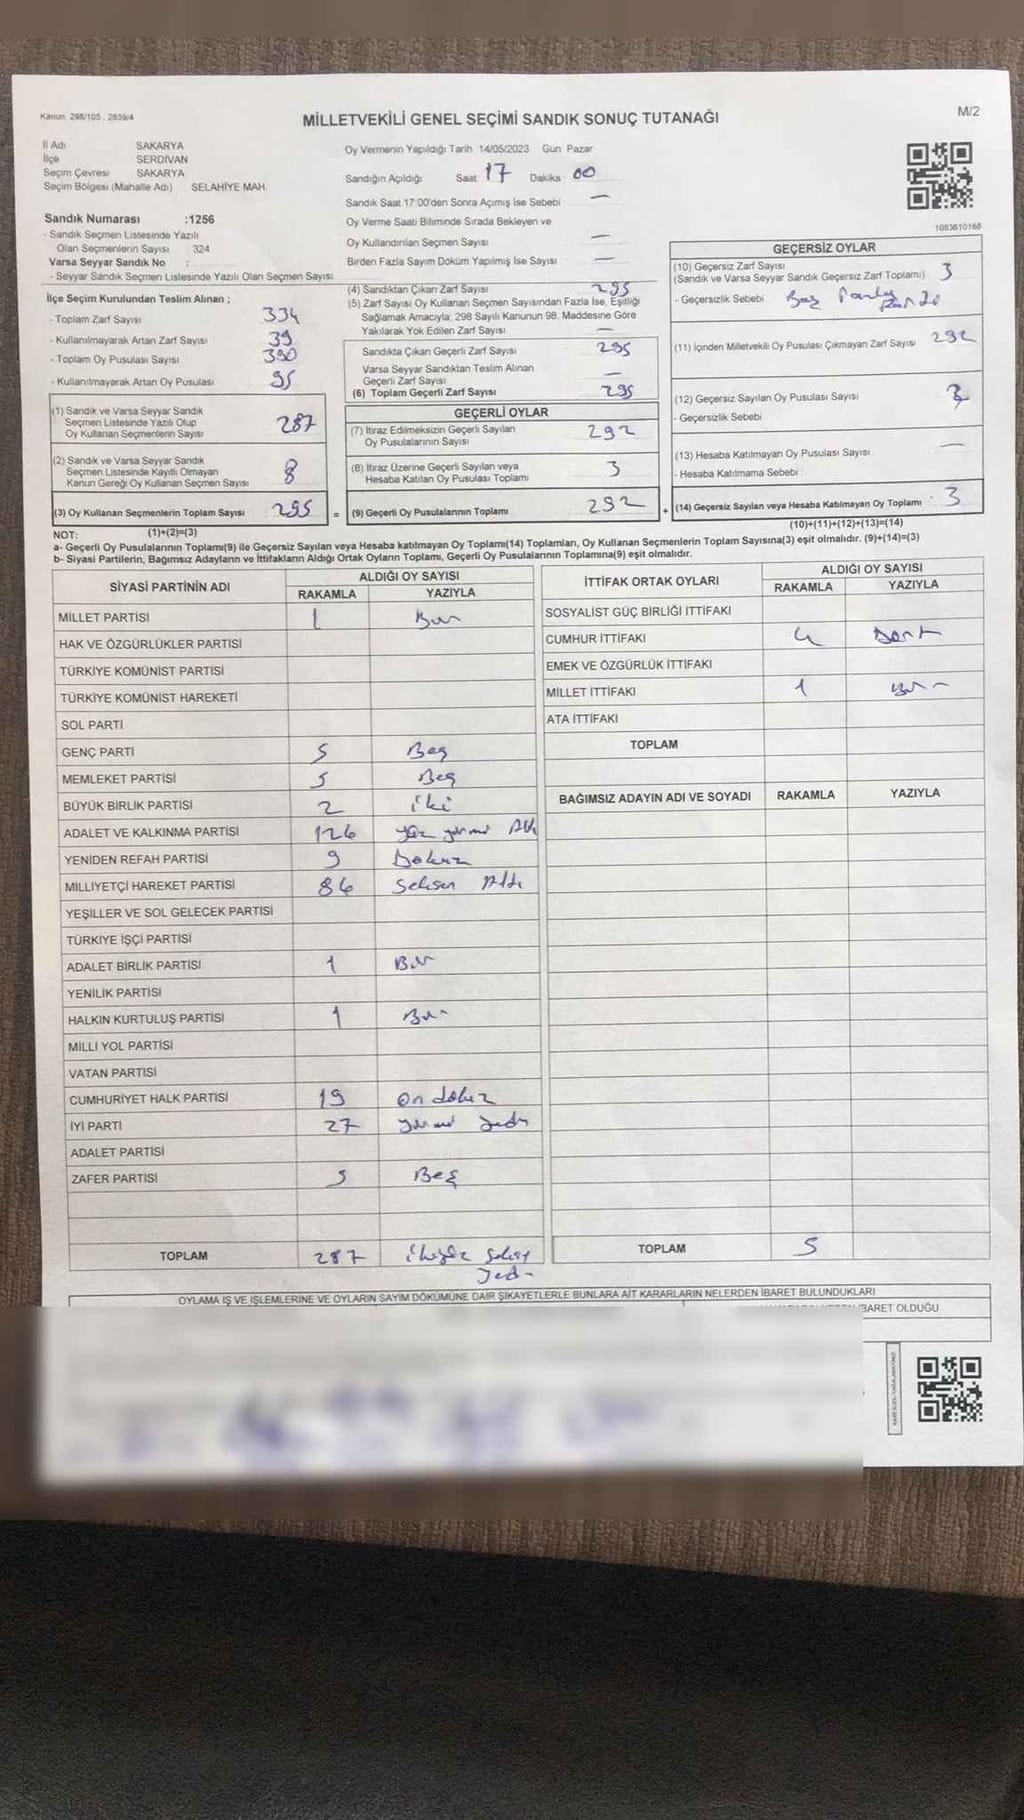 Kanun. 298/105 , 2839/4
MİLLETVEKİLİ GENEL SEÇİMİ SANDIK SONUÇ TUTANAĞI
M/2
İl Adı SAKARYA
İlçe SERDİVAN
Seçim Çevresi SAKARYA
Seçim Bölgesi (Mahalle Adı) SELAHİYE MAH.
Sandık Numarası :1256
- Sandık Seçmen Listesinde Yazılı
Olan Seçmenlerin Sayısı 324
Varsa Seyyar Sandık No :
- Seyyar Sandık Seçmen Listesinde Yazılı Olan Seçmen Sayısı
İlçe Seçim Kurulundan Teslim Alınan ;
- Toplam Zarf Sayısı 334
- Kullanılmayarak Artan Zarf Sayısı 39
- Toplam Oy Pusulası Sayısı 390
- Kullanılmayarak Artan Oy Pusulası 95
(1) Sandık ve Varsa Seyyar Sandık
Seçmen Listesinde Yazılı Olup
Oy Kullanan Seçmenlerin Sayısı 287
(2) Sandık ve Varsa Seyyar Sandık
Seçmen Listesinde Kayıtlı Olmayan
Kanun Gereği Oy Kullanan Seçmen Sayısı 8
(3) Oy Kullanan Seçmenlerin Toplam Sayısı 295 =
Oy Vermenin Yapıldığı Tarih 14/05/2023 Gün Pazar
Sandığın Açıldığı Saat 17 Dakika 00
Sandık Saat 17:00'den Sonra Açımış İse Sebebi —
Oy Verme Saati Bitiminde Sırada Bekleyen ve
Oy Kullandırılan Seçmen Sayısı —
Birden Fazla Sayım Döküm Yapılmış İse Sayısı —
(4) Sandıktan Çıkan Zarf Sayısı 295
(5) Zarf Sayısı Oy Kullanan Seçmen Sayısından Fazla İse, Eşitliği
Sağlamak Amacıyla, 298 Sayılı Kanunun 98. Maddesine Göre
Yakılarak Yok Edilen Zarf Sayısı —
Sandıkta Çıkan Geçerli Zarf Sayısı 295
Varsa Seyyar Sandıktan Teslim Alınan
Geçerli Zarf Sayısı —
(6) Toplam Geçerli Zarf Sayısı 295
GEÇERLİ OYLAR
(7) İtiraz Edilmeksizin Geçerli Sayılan
Oy Pusulalarının Sayısı 292
(8) İtiraz Üzerine Geçerli Sayılan veya
Hesaba Katılan Oy Pusulası Toplamı 3
(9) Geçerli Oy Pusulalarının Toplamı 292 +
1083610168
GEÇERSİZ OYLAR
(10) Geçersiz Zarf Sayısı
(Sandık ve Varsa Seyyar Sandık Geçersiz Zarf Toplamı) 3
- Geçersizlik Sebebi
(11) İçinden Milletvekili Oy Pusulası Çıkmayan Zarf Sayısı 292
(12) Geçersiz Sayılan Oy Pusulası Sayısı 3
- Geçersizlik Sebebi
(13) Hesaba Katılmayan Oy Pusulası Sayısı —
- Hesaba Katılmama Sebebi :
(14) Geçersiz Sayılan veya Hesaba Katılmayan Oy Toplamı 3
NOT: (1)+(2)=(3) (10)+(11)+(12)+(13)=(14)
a- Geçerli Oy Pusulalarının Toplamı(9) ile Geçersiz Sayılan veya Hesaba katılmayan Oy Toplamı(14) Toplamları, Oy Kullanan Seçmenlerin Toplam Sayısına(3) eşit olmalıdır. (9)+(14)=(3)
b- Siyasi Partilerin, Bağımsız Adayların ve İttifakların Aldığı Ortak Oyların Toplamı, Geçerli Oy Pusulalarının Toplamına(9) eşit olmalıdır.
SİYASİ PARTİNİN ADI ALDIĞI OY SAYISI
RAKAMLA YAZIYLA
MİLLET PARTİSİ 1 Bir
HAK VE ÖZGÜRLÜKLER PARTİSİ
TÜRKİYE KOMÜNİST PARTİSİ
TÜRKİYE KOMÜNİST HAREKETİ
SOL PARTİ
GENÇ PARTİ 5 Beş
MEMLEKET PARTİSİ 5 Beş
BÜYÜK BİRLİK PARTİSİ 2 iki
ADALET VE KALKINMA PARTİSİ 126 yüz yirmi Altı
YENİDEN REFAH PARTİSİ 9 Dokuz
MİLLİYETÇİ HAREKET PARTİSİ 86 Seksen Altı
YEŞİLLER VE SOL GELECEK PARTİSİ
TÜRKİYE İŞÇİ PARTİSİ
ADALET BİRLİK PARTİSİ 1 Bir
YENİLİK PARTİSİ
HALKIN KURTULUŞ PARTİSİ 1 Bir
MİLLİ YOL PARTİSİ
VATAN PARTİSİ
CUMHURİYET HALK PARTİSİ 19 On dokuz
İYİ PARTİ 27 yirmi yedi
ADALET PARTİSİ
ZAFER PARTİSİ 5 Beş
TOPLAM 287 ikiyüz Seksen
Yedi
İTTİFAK ORTAK OYLARI ALDIĞI OY SAYISI
RAKAMLA YAZIYLA
SOSYALİST GÜÇ BİRLİĞİ İTTİFAKI
CUMHUR İTTİFAKI 4 Dört
EMEK VE ÖZGÜRLÜK İTTİFAKI
MİLLET İTTİFAKI 1 Bir
ATA İTTİFAKI
TOPLAM
BAĞIMSIZ ADAYIN ADI VE SOYADI RAKAMLA YAZIYLA
TOPLAM 5
OYLAMA İŞ VE İŞLEMLERİNE VE OYLARIN SAYIM DÖKÜMÜNE DAİR ŞİKAYETLERLE BUNLARA AİT KARARLARIN NELERDEN İBARET BULUNDUKLARI
BARET OLDUĞU